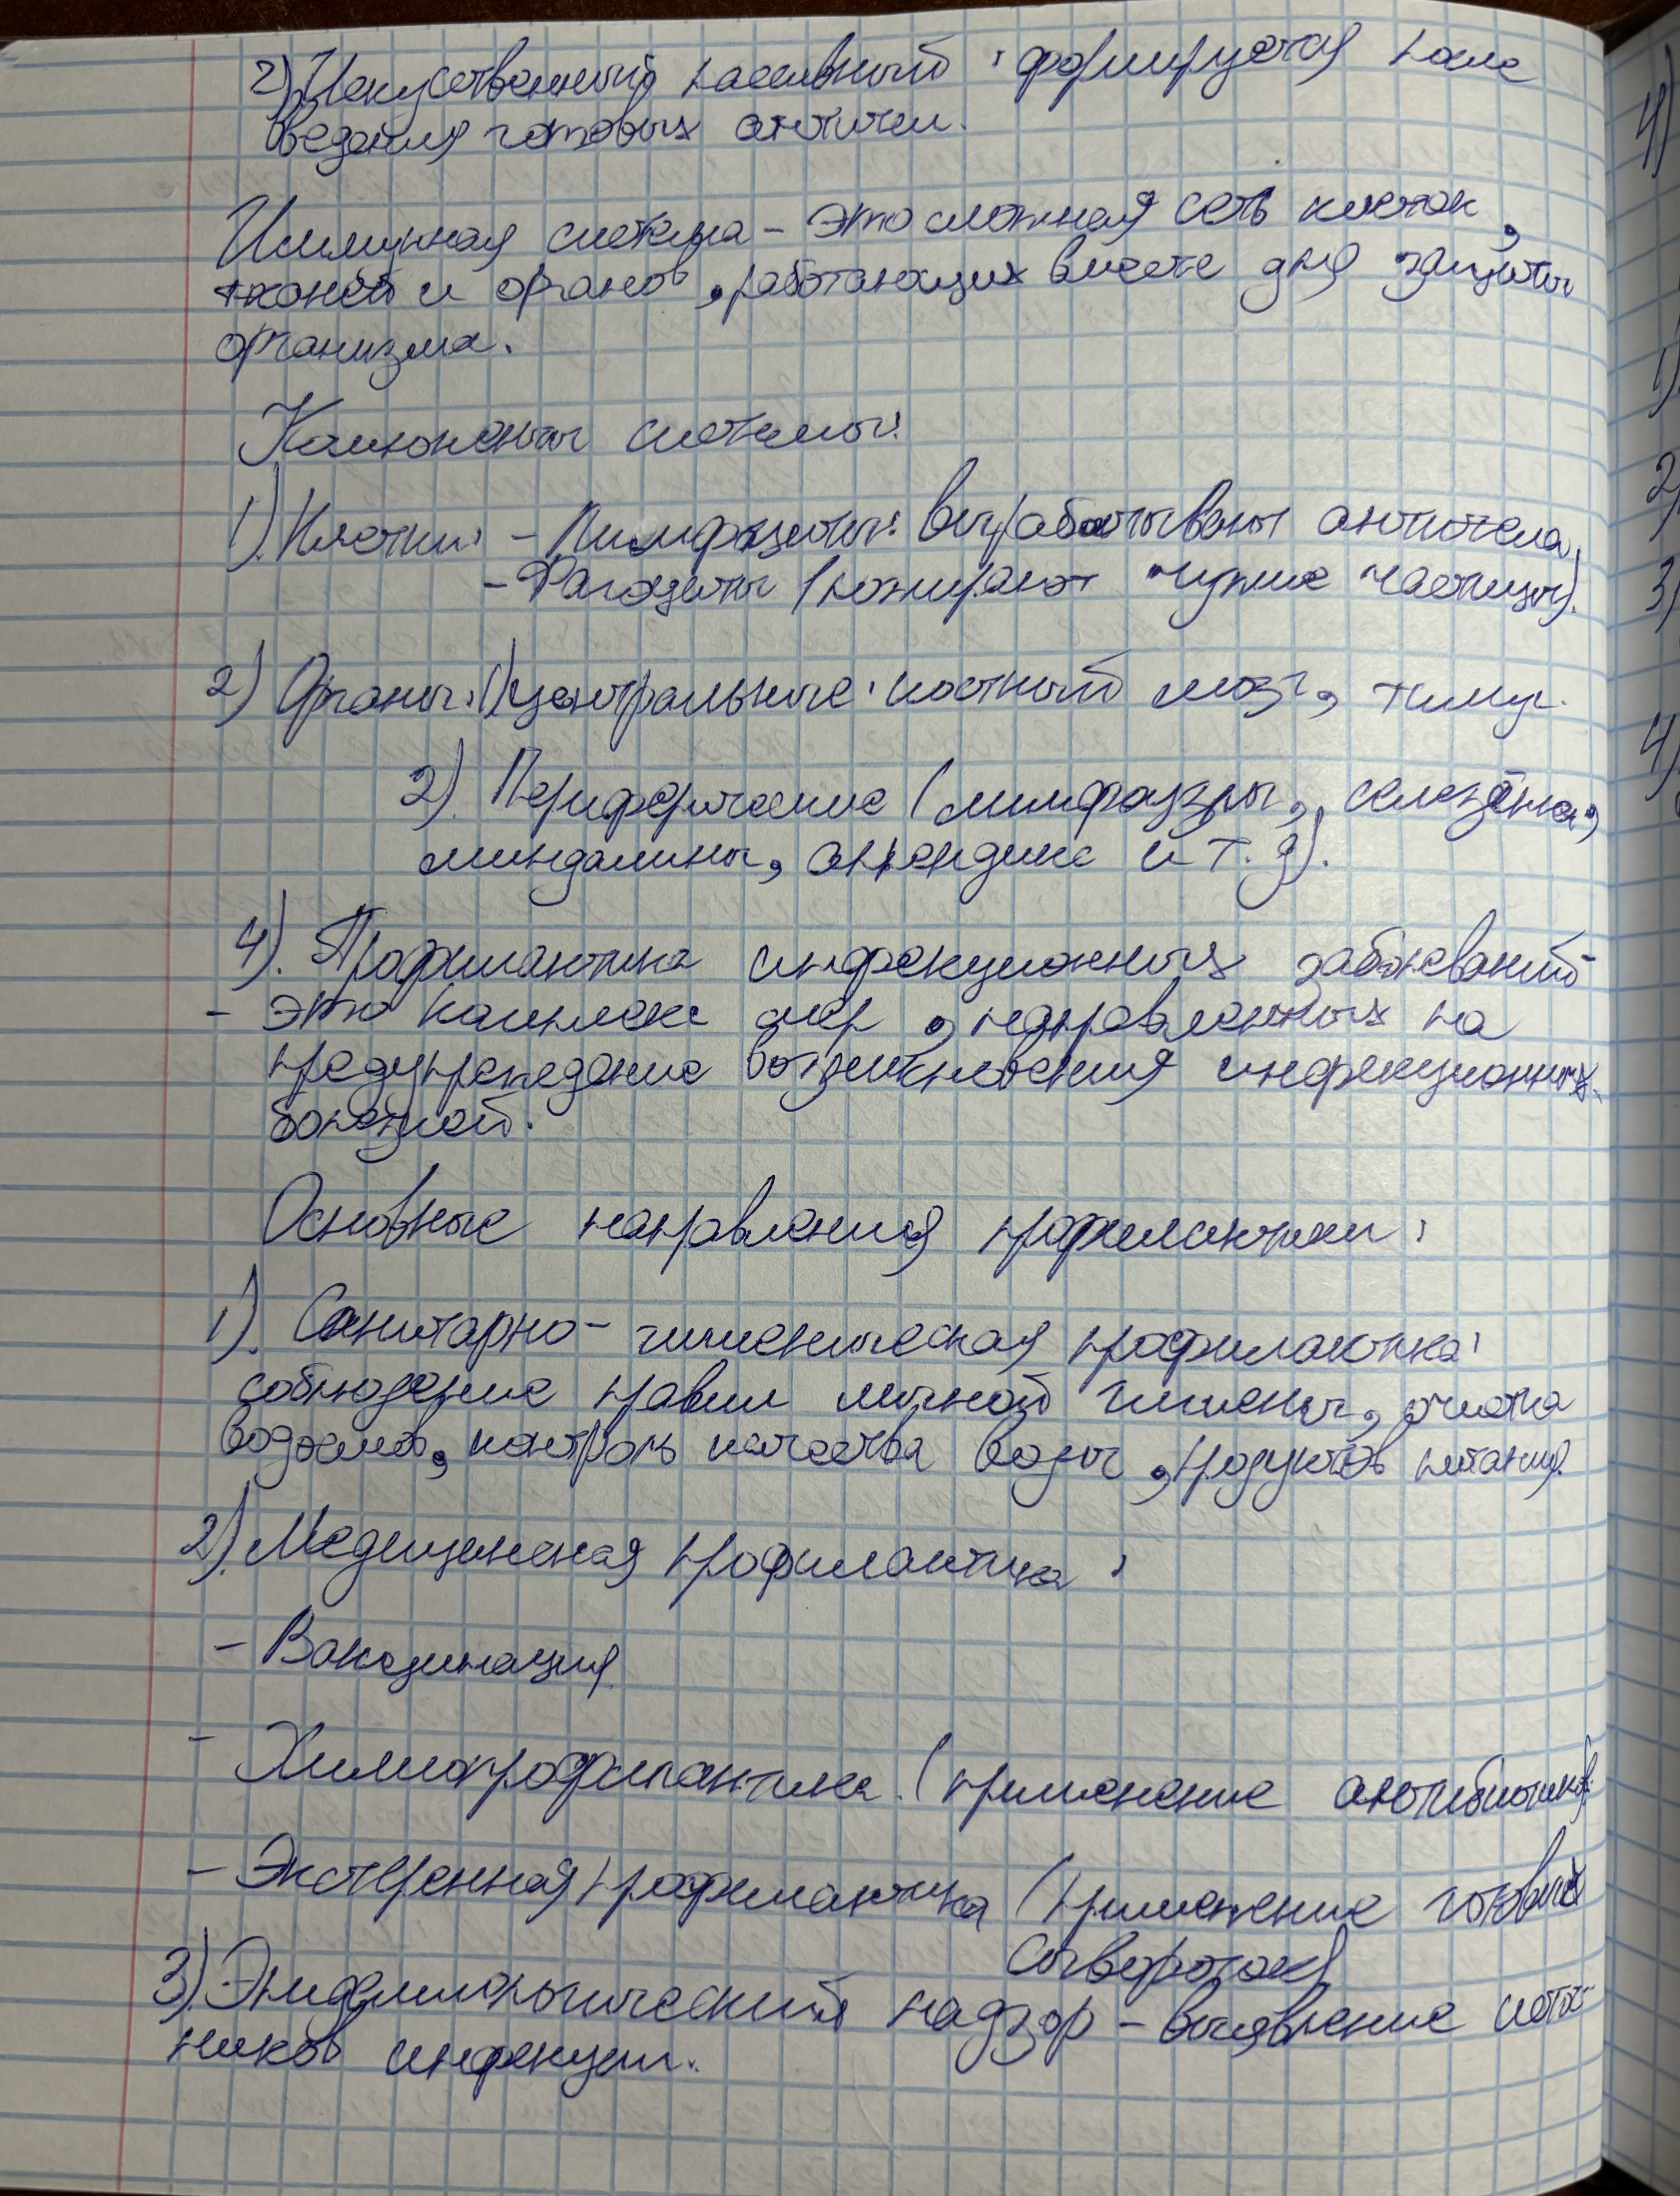 2) Искуственный пассивный: формируется после
введения готовых антител.
Иммунная система - это сложная сеть клеток,
тканей и органов, работающих вместе для защиты
организма.
Компоненты системы:
1). Клетки: - Лимфоциты: вырабатывают антитела.
- Фагоциты (пожирают чужие частицы).
2) Органы: 1) Центральные: костный мозг, тимус.
2). Периферические (лимфоузлы, селезёнка,
миндалины, аппендикс и т. д).
4). Профилактика инфекционных заболеваний
- это комплекс мер, направленных на
предупреждение возникновения инфекционных
болезней.
Основные направления профилактики:
1). Санитарно-гигиеническая профилактика:
соблюдение правил личной гигиены, очистка
водоёмов, контроль качества воды, продуктов питания.
2). Медицинская профилактика:
- Вакцинация
- Химиопрофилактика (применение антибиотиков)
- Экстренная профилактика (применение готовых
сывороток)
3). Эпидемиологический надзор - выявление источ
ников инфекции.
4)
1)
2)
3)
4)